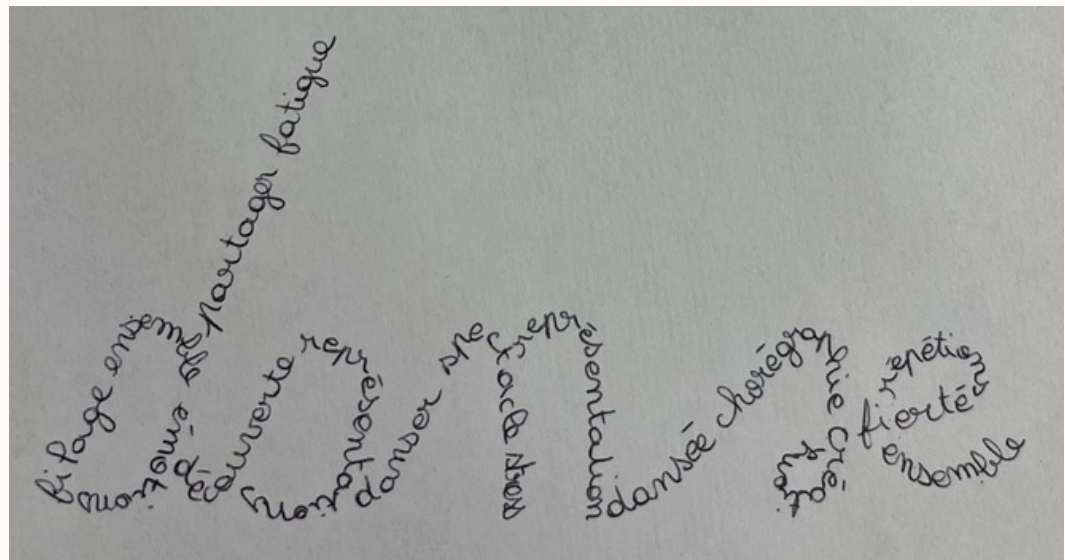 filage ensemble émotions
partager fatigue
découverte représentation
danser spectacle stress
représentation
dansée chorégraphie
fierté
ensemble